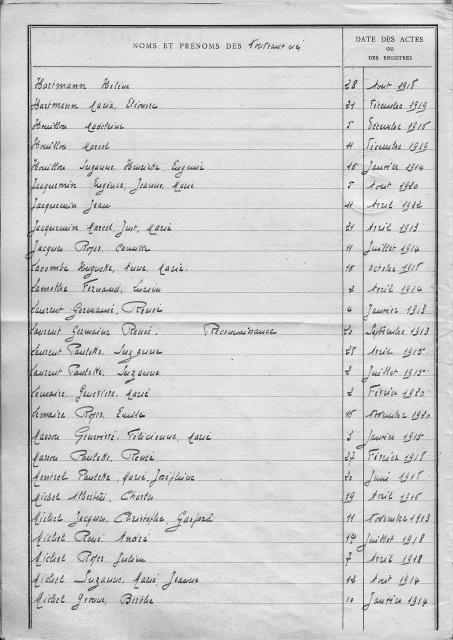 NOMS ET PRÉNOMS DES
DATE DES ACTES
OU
DES REGISTRES
Hartmann Hélène 28 Aout 1918
Hartmann Maria, Eléonore 31 Décembre 1919
Houillon Madeleine 5 Décembre 1916
Houillon Marcel 11 Décembre 1919
Houillon Suzanne, Henriette Eugénie 16 Janvier 1914
Jacquemin Eugénie, Jeanne, Marie 5 Aout 1920
Jacquemin Jean 11 Avril 1922
Jacquemin Marcel, Just, Marie 21 Avril 1913
Jacques Roger, Camille 11 Juillet 1914
Lacombe Huguette, Anne, Marie. 18 Octobre 1915
Lamothe Fernand, Lucien 2 Avril 1914
Laurent Germaine, Renée 4 Janvier 1913
Laurent Germaine Renée. Reconnaissance 20 Septembre 1913
Laurent Paulette, Suzanne 28 Avril 1915
Laurent Paulette, Suzanne 2 Juillet 1915
Lemaire Geneviève, Marie 2 Février 1920
Lemaire Roger, Emile 15 Novembre 1920
Masson Geneviève, Félicienne, Marie 3 Janvier 1915
Masson Paulette, Renée 27 Février 1918
Mentzel Paulette, Marie, Joséphine 20 Juin 1915
Michel Charles 19 Avril 1916
Michel Jacques, Christophe, Gaspard 11 Novembre 1913
Michel René André 14 Juillet 1918
Michel Roger Julien 7 Avril 1918
Michel Suzanne, Marie, Jeanne 12 Aout 1914
Michel Berthe 10 Janvier 1914